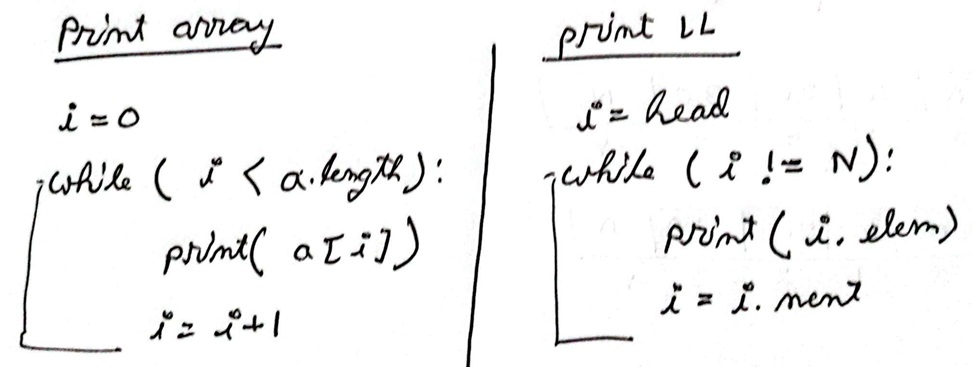 Print array
i = 0
while ( i < a.length):
print( a[i])
i = i+1
print LL
i = head
while ( i != N):
print( i. elem)
i = i. next